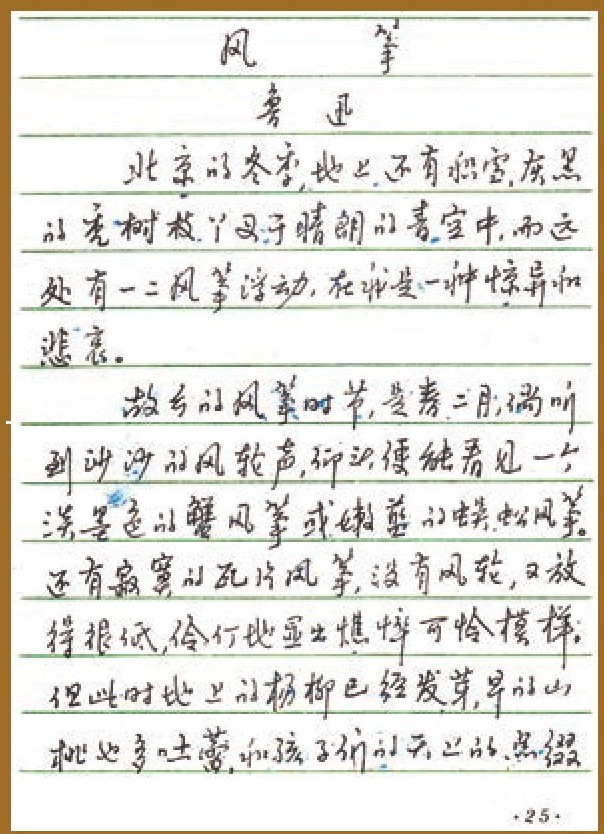 风 筝
鲁迅
北京的冬季,地上还有积雪,灰黑
的秃树枝丫叉于晴朗的青空中,而远
处有一二风筝浮动,在我是一种惊异和
悲哀。
故乡的风筝时节,是春二月,倘听
到沙沙的风轮声,仰头便能看见一个
淡墨色的蟹风筝或嫩蓝的蜈蚣风筝。
还有寂寞的瓦片风筝,没有风轮,又放
得很低,伶仃地显出憔悴可怜模样。
但此时地上的杨柳已经发芽,早的山
桃也多吐蕾,和孩子们的天上的点缀
·25·